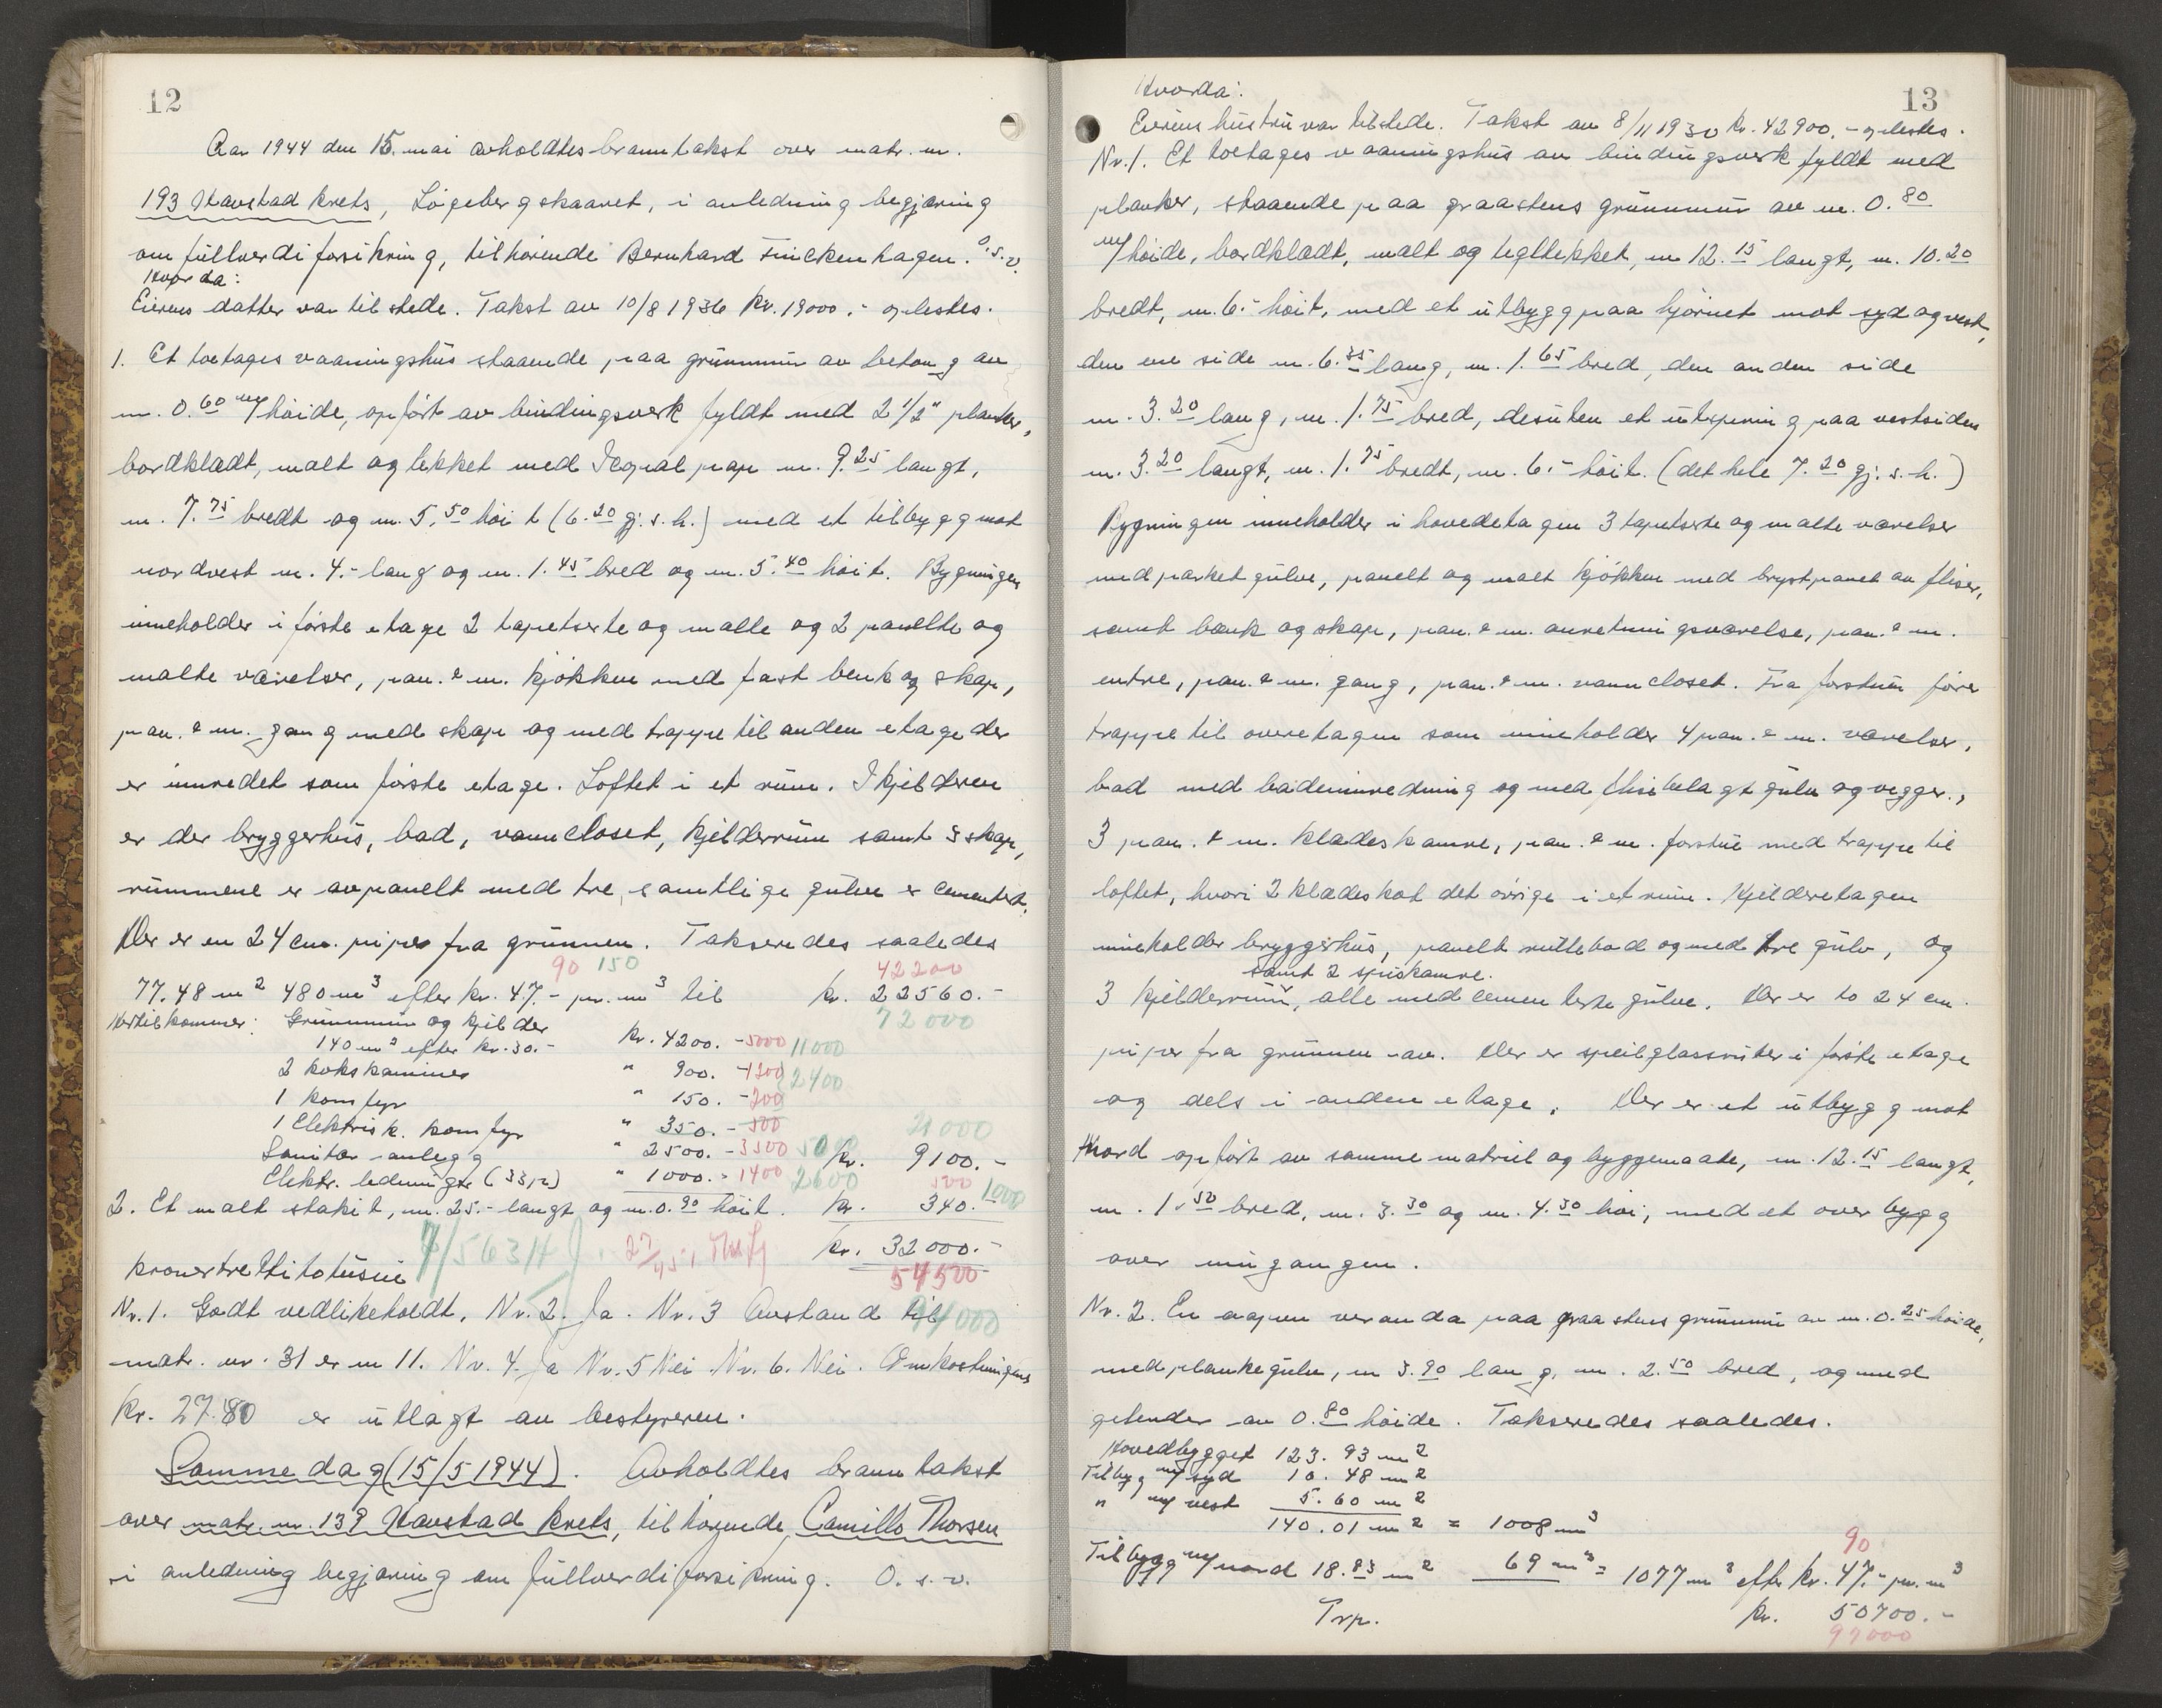 12
Aar 1944 den 15. mai avholdtes branntakst over matr. nr.
193 Havstad krets, Løgebergskaaret, i anledning begjæring
om fullverdiforsikring, tilhørende Bernhard Finckenhagen. O.s.v.
Hvorda:
Eierens datter var tilstede. Takst av 10/8 1936 kr. 19000.- oplestes.
1. Et toetages vaaningshus staaende paa grunnmur av betong av
m. 0.60 høide, opført av bindingsverk fyldt med 2 1/2" planker,
bordklædt, malt og tekket med Icopal pap m. 9.25 langt,
m. 7.75 bredt og m. 5.50 høit (6.20 gj. s. h.) med et tilbygg mot
nordvest m. 4.- lang og m. 1.45 bred og m. 5.40 høit. Bygningen
inneholder i første etage 2 tapetserte og malte og 2 panelte og
malte værelser, pan. & m. kjøkken med fast benk og skap,
pan. & m. gang med skap og med trappe til anden etage der
er innredet som første etage. Loftet i et rum. I kjelderen
er der bryggerhus, bad, vanncloset, kjelderrum samt 3 skap,
rummene er avpanelt med tre, samtlige gulve er cementert.
Der er en 24 cm. pipe fra grunnen. Takseredes saaledes
90 150 42200
77.48 m2 480 m3 efter kr. 47.- pr. m3 til kr. 22560.-
72000
Hertil kommer: Grunnmur og kjelder
140 m2 efter kr. 30.- kr. 4200.- 5000 11000
2 kokskaminer " 900.- 1200 2400
1 komfyr " 150.- 200
1 Elektrisk. komfyr " 350.- 500 21000
Sanitær anlegg " 2500.- 3500 5000 kr. 9100.-
Elektr. ledninger (33 p) " 1000.- 1400 2600 500 1000
2. Et malt stakit, m. 25.- langt og m. 0.90 høit. kr. 340.-
kr. 32000.-
kronertrettitotusin 27/45 54500
94000
Nr. 1. Godt vedlikeholdt. Nr. 2. Ja. Nr. 3 Avstand til
matr. nr. 31 er m 11. Nr. 4. Ja Nr. 5 Nei. Nr. 6. Nei. Omkostningene
kr. 27.80 er utlagt av bestyreren.
Samme dag (15/5 1944). Avholdtes branntakst
over matr. nr. 139 Havstad krets, tilhørende Camillo Thorsen
i anledning begjæring om fullverdiforsikring. O. s. v.
13
Hvorda:
Eierens hustru var tilstede. Takst av 8/11 1930 kr. 42900.- oplestes.
Nr. 1. Et toetages vaaningshus av bindingsverk fyldt med
planker, staaende paa graastens grunnmur av m. 0.80
høide, bordklædt, malt og tegltekket, m 12.15 langt, m. 10.20
bredt, m. 6.- høit, med et utbygg paa hjørnet mot syd og vest,
den ene side m. 6.35 lang, m. 1.65 bred, den anden side
m. 3.20 lang, m. 1.75 bred, desuten et utspring paa vestsiden
m. 3.20 langt, m. 1.75 bredt, m. 6.- høit. (det hele 7.20 gj. s. h.)
Bygningen inneholder i hovedetagen 3 tapetserte og malte værelser
med parketgulve, panelt og malt kjøkken med brystpanel av fliser,
samt bænk og skap, pan. & m. anretningsværelse, pan. & m.
entre, pan. & m. gang, pan. & m. vanncloset. Fra forstuen fører
trappe til overetagen som inneholder 4 pan. & m. værelser,
bad med badeinnredning og med flisebelagt gulv og vegger,
3 pan. & m. klædeskamre, pan. & m. forstue med trappe til
loftet, hvori 2 klædeskot det øvrige i et rum. Kjelderetagen
inneholder bryggerhus, panelt rullebod og med tre gulv, og
samt 2 spiskamre.
3 kjelderrum, alle med cementerte gulve. Der er to 24 cm.
piper fra grunnen av. Der er speilglassruter i første etage
og dels i anden etage. Der er et utbygg mot
Nord opført av samme matriel og byggemaate, m. 12.15 langt,
m. 1.50 bred, m. 3.30 og m. 4.30 høi, med et overbygg
over inngangen.
Nr. 2. En aapen veranda paa graastens grunnmur av m. 0.25 høide,
med plankegulv, m 3.90 lang, m. 2.50 bred, og med
gelender av 0.80 høide. Takseredes saaledes.
Hovedbygget 123.93 m2
Tilbygg syd 10.48 m2
" vest 5.60 m2
140.01 m2 = 1008 m3
90
Tilbygg nord 18.83 m2 69 m3 = 1077 m3 efter kr. 47.- pr. m3
Trp. kr. 50700.-
99000